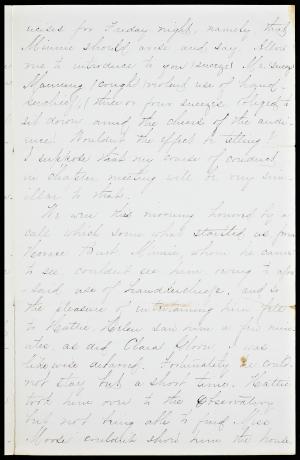 ecises for Friday night, namely that
Minnie should arise and say, Allow
me to introduce to you (sneeze) Mr. (sneeze)
Manning (cough) violent use of hand-
kerchief, (three or four sneezes obliged to
sit down amid the cheers of the audi-
ence. Wouldn't the effect be telling!
I suppose that my course of conduct
in chapter meeting will be very sim-
illar to that.
We were this morning honored by a
call which some what startled us from
Horace. Minnie, whom he came
to see, couldn't see him, owing to afore
-said use of handkerchiefs, and so
the pleasure of entertaining him fell
to Hattie. Helen saw him a few min-
utes, as did Clara. I was
likewise detained. Fortunately he could
not stay but a short time. Hattie
took him over to the Observatory
but not being able to find Miss
couldn't show him the house.